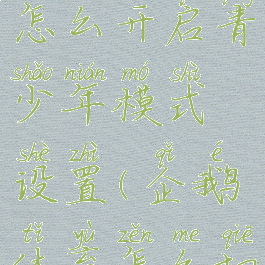 怎么开启青
shǎo nián mó shì
少年模式
shè zhì qǐ é
设置(企鹅
tǐ yù zěn me qiē
体育怎么切